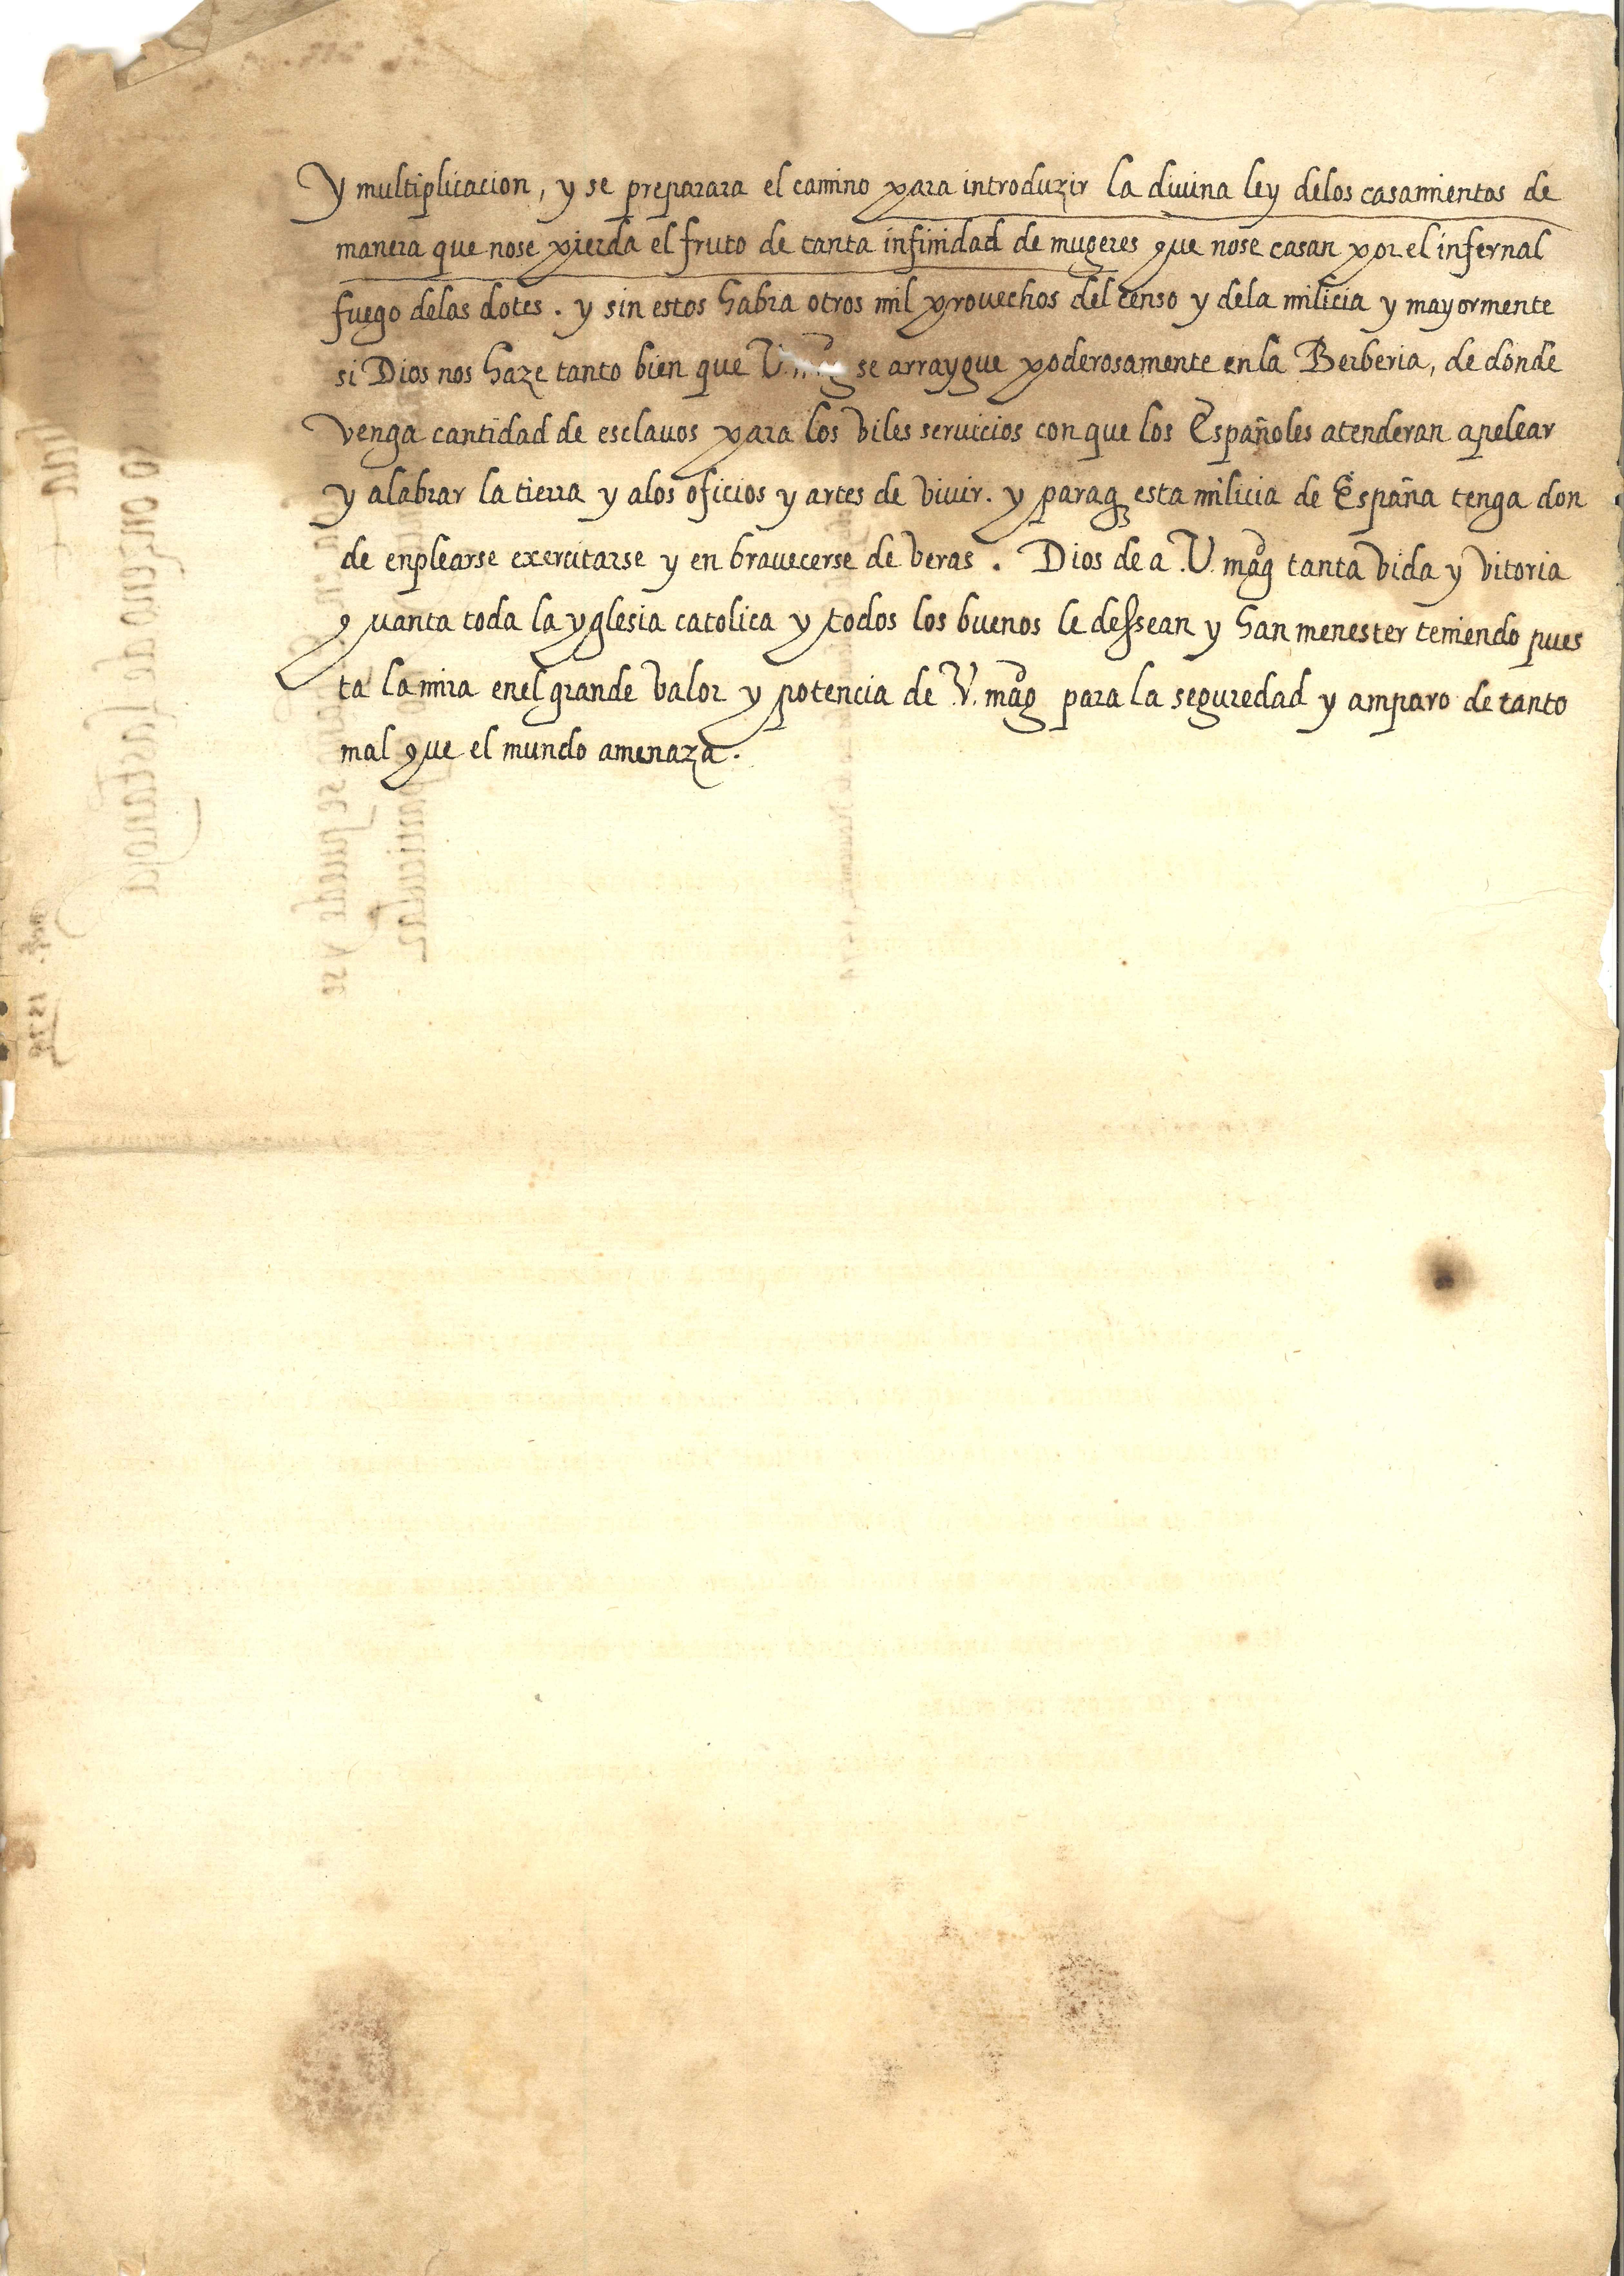 y multiplicacion, y se preparara el camino para introduzir la diuina ley delos casamientos de
manera que nose pierda el fruto de tanta infinidad de mugeres que nose casan por el infernal
fuego delas dotes. y sin estos habra otros mil prouechos del censo y dela milicia y mayormente
si Dios nos haze tanto bien que V. mag se arraygue poderosamente en la Berberia, de donde
venga cantidad de esclauos para los viles seruicios con que los Españoles atenderan apelear
y alabrar la tierra y alos oficios y artes de viuir. y paraq esta milicia de España tenga don
de enplearse exercitarse y en brauecerse de veras. Dios de a .V. mag tanta vida y vitoria
quanta toda la yglesia catolica y todos los buenos le dessean y han menester teniendo pues
ta la mira enel grande valor y potencia de .V. mag para la seguredad y amparo de tanto
mal que el mundo amenaza.